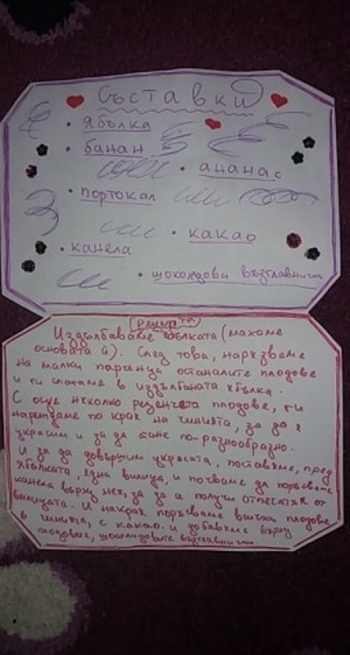 Съставки
• ябълка
• банан
• ананас
• портокал
• какао
• канела
• шоколадови възглавнички
Рецепта
Издълбаваме ябълката (махаме
основата ѝ). След това, нарязваме
на малки парченца останалите плодове
и ги слагаме в издълбаната ябълка.
С още няколко резенчета плодове, ги
нареждаме по края на чинията, за да я
украсим и за да стане по-разнообразно.
И за да довършим украсата, поставяме, пред
ябълката, една вилица, и почваме да поръсваме
канела върху нея, за да се получи отпечатък от
вилицата. И накрая поръсваме всички плодове
в чинията, с какао. и добавяме върху
плодовете, шоколадовите възглавнички.